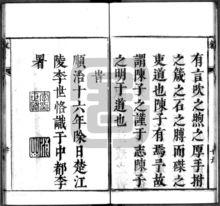 有言吹之煦之厚手拊
之箴之石之膊而瞭之
吏道也陳子有焉予故
謂陳子之謹于志陳子
之明于道也
旹
順治十六年除日楚江
陵李世恪識于中都李
署